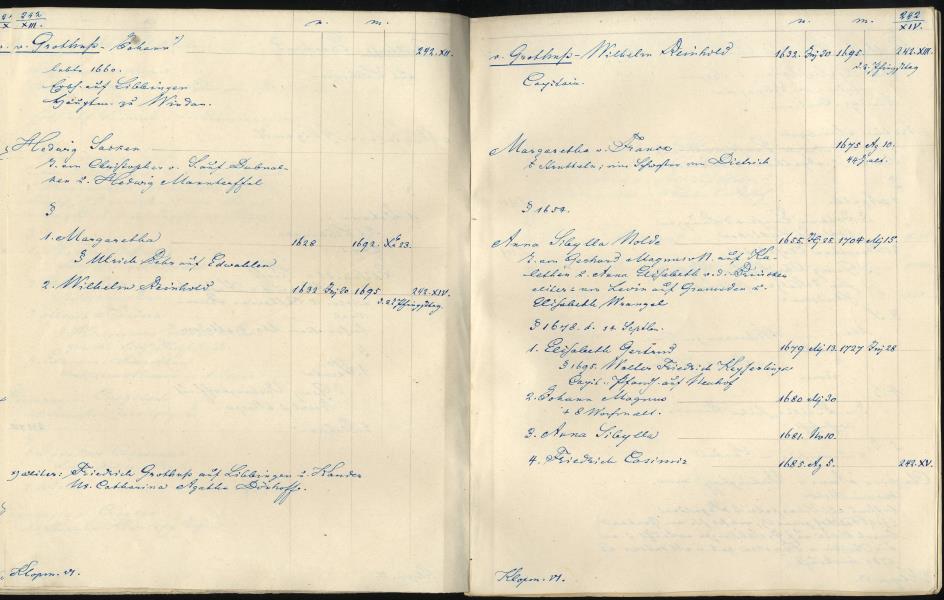 242
XIII.
n. m.
v. Grotthuß - Johann 242. XII.
lebte 1660.
Erbh. auf Libbingen
Hauptm. zu Windau.
Hedwig Sacken
T. von Christopher v. S. auf Dubnal-
ken & Hedwig Mannteuffel
§
1. Margaretha 1628 1692. Xb 23.
§ Ulrich Behr auf Edwahlen
2. Wilhelm Reinhold 1632 Juj 20 1695. 242. XIV.
d. 2. Pfingsttag.
Friedrich Grotthuß auf Libbingen & Kander
Ux. Catharina Agatha Dönhoff.
Klopm. VI.
242
XIV.
n. m.
v. Grotthuß - Wilhelm Reinhold 1632. Juj 20 1695. 242. XIII.
d. 2. Pfingsttag
Capitain.
Margaretha v. Franck 1675 Ag 10.
44 J. alt.
eine Schwester von Dietrich
§ 1654.
Anna Sibylla Nolde 1655. 25. 1704 Mj 15.
T. von Gerhard Magnus N. auf Ka-
letten & Anna Elisabeth v. d. Brincken
von Levin auf Gramsden &
Elisabeth Wrangel
§ 1678. d. 14. Septbr.
1. Elisabeth Gertrud 1679 Mj 13. 1727 Juj 28
§ 1695. Walter Friedrich Keyserlingk
Capit. Pfandh. auf Neuhof
2. Johann Magnus 1680 Mj 30
+ 8 Wochen alt.
3. Anna Sibylla 1681. Nv 10.
4. Friedrich Casimir 1685. Ag 5. 242. XV.
Klopm. VI.